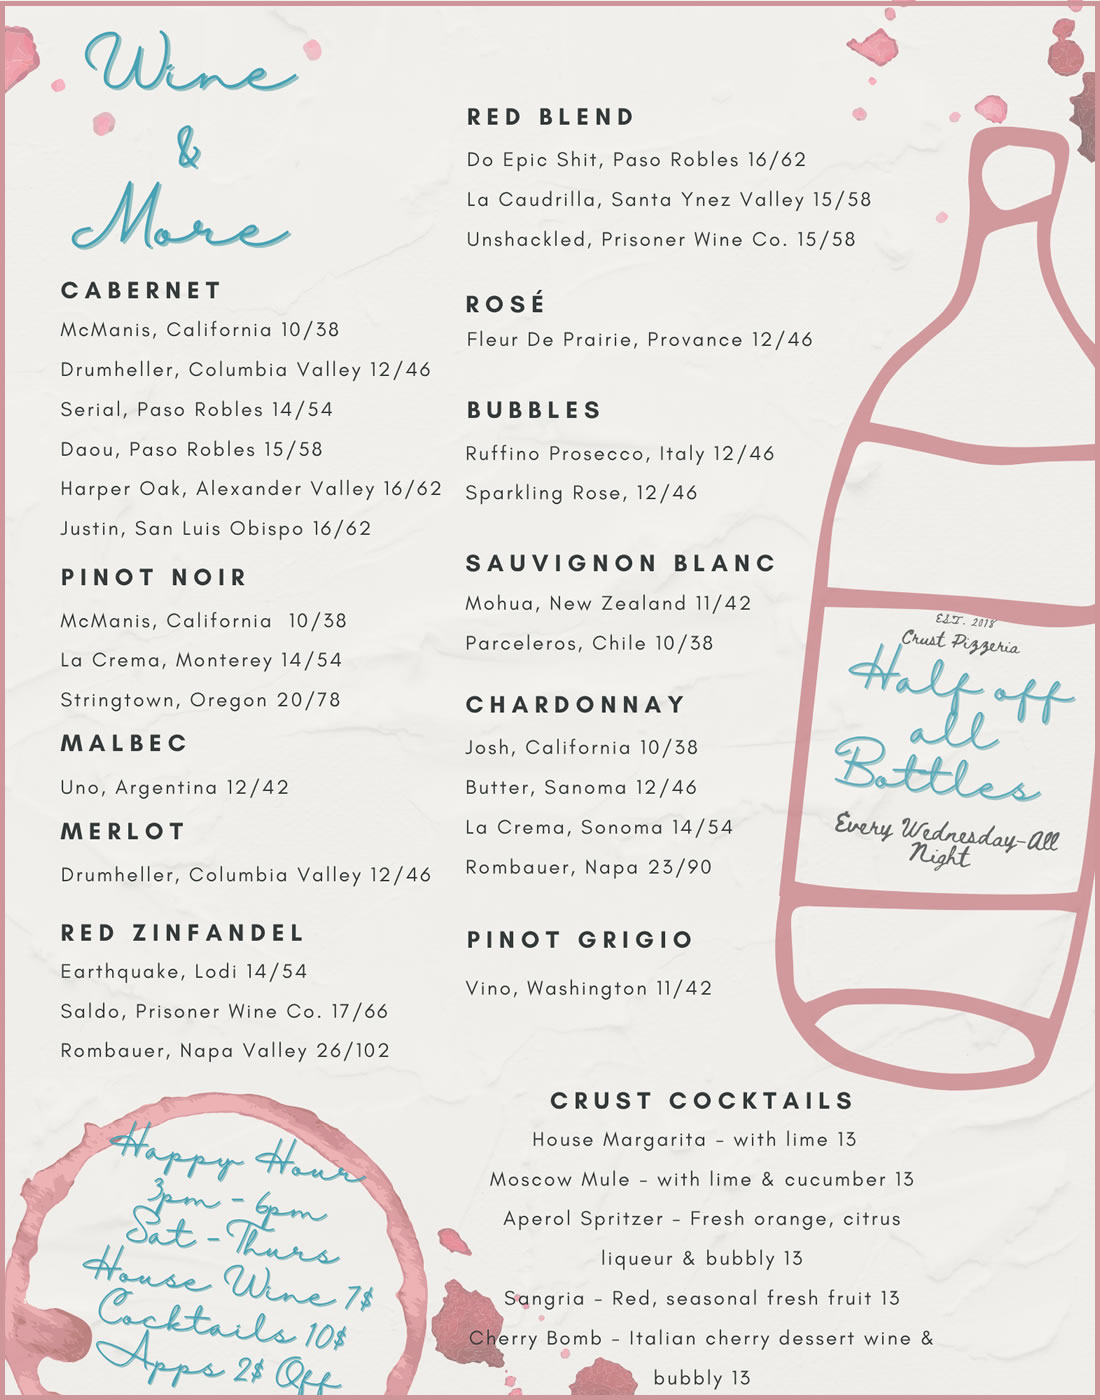 Wine
&
More
CABERNET
McManis, California 10/38
Drumheller, Columbia Valley 12/46
Serial, Paso Robles 14/54
Daou, Paso Robles 15/58
Harper Oak, Alexander Valley 16/62
Justin, San Luis Obispo 16/62
PINOT NOIR
McManis, California 10/38
La Crema, Monterey 14/54
Stringtown, Oregon 20/78
MALBEC
Uno, Argentina 12/42
MERLOT
Drumheller, Columbia Valley 12/46
RED ZINFANDEL
Earthquake, Lodi 14/54
Saldo, Prisoner Wine Co. 17/66
Rombauer, Napa Valley 26/102
Happy Hour
3pm - 6pm
Sat - Thurs
House Wine 7$
Cocktails 10$
Apps 2$ Off
RED BLEND
Do Epic Shit, Paso Robles 16/62
La Caudrilla, Santa Ynez Valley 15/58
Unshackled, Prisoner Wine Co. 15/58
ROSÉ
Fleur De Prairie, Provance 12/46
BUBBLES
Ruffino Prosecco, Italy 12/46
Sparkling Rose, 12/46
SAUVIGNON BLANC
Mohua, New Zealand 11/42
Parceleros, Chile 10/38
CHARDONNAY
Josh, California 10/38
Butter, Sanoma 12/46
La Crema, Sonoma 14/54
Rombauer, Napa 23/90
PINOT GRIGIO
Vino, Washington 11/42
CRUST COCKTAILS
House Margarita - with lime 13
Moscow Mule - with lime & cucumber 13
Aperol Spritzer - Fresh orange, citrus
liqueur & bubbly 13
Sangria - Red, seasonal fresh fruit 13
Cherry Bomb - Italian cherry dessert wine &
bubbly 13
EST. 2018
Crust Pizzeria
Half off
all
Bottles
Every Wednesday-All
Night